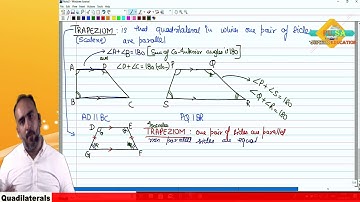 TRAPEZIOM: is that quadrilateral in which one pair of sides
(Scalene) are parallel
∠A+∠B=180 [Sum of Co-interior angles is 180
and
∠D+∠C=180 (do)
A D P Q
∠P+∠S=180
∠Q+∠R=180
B C S R
AD||BC PQ||SR
Isosceles
D E TRAPEZIOM: one pair of sides are parallel
non parallel sides are equal
G F
Quadilaterals